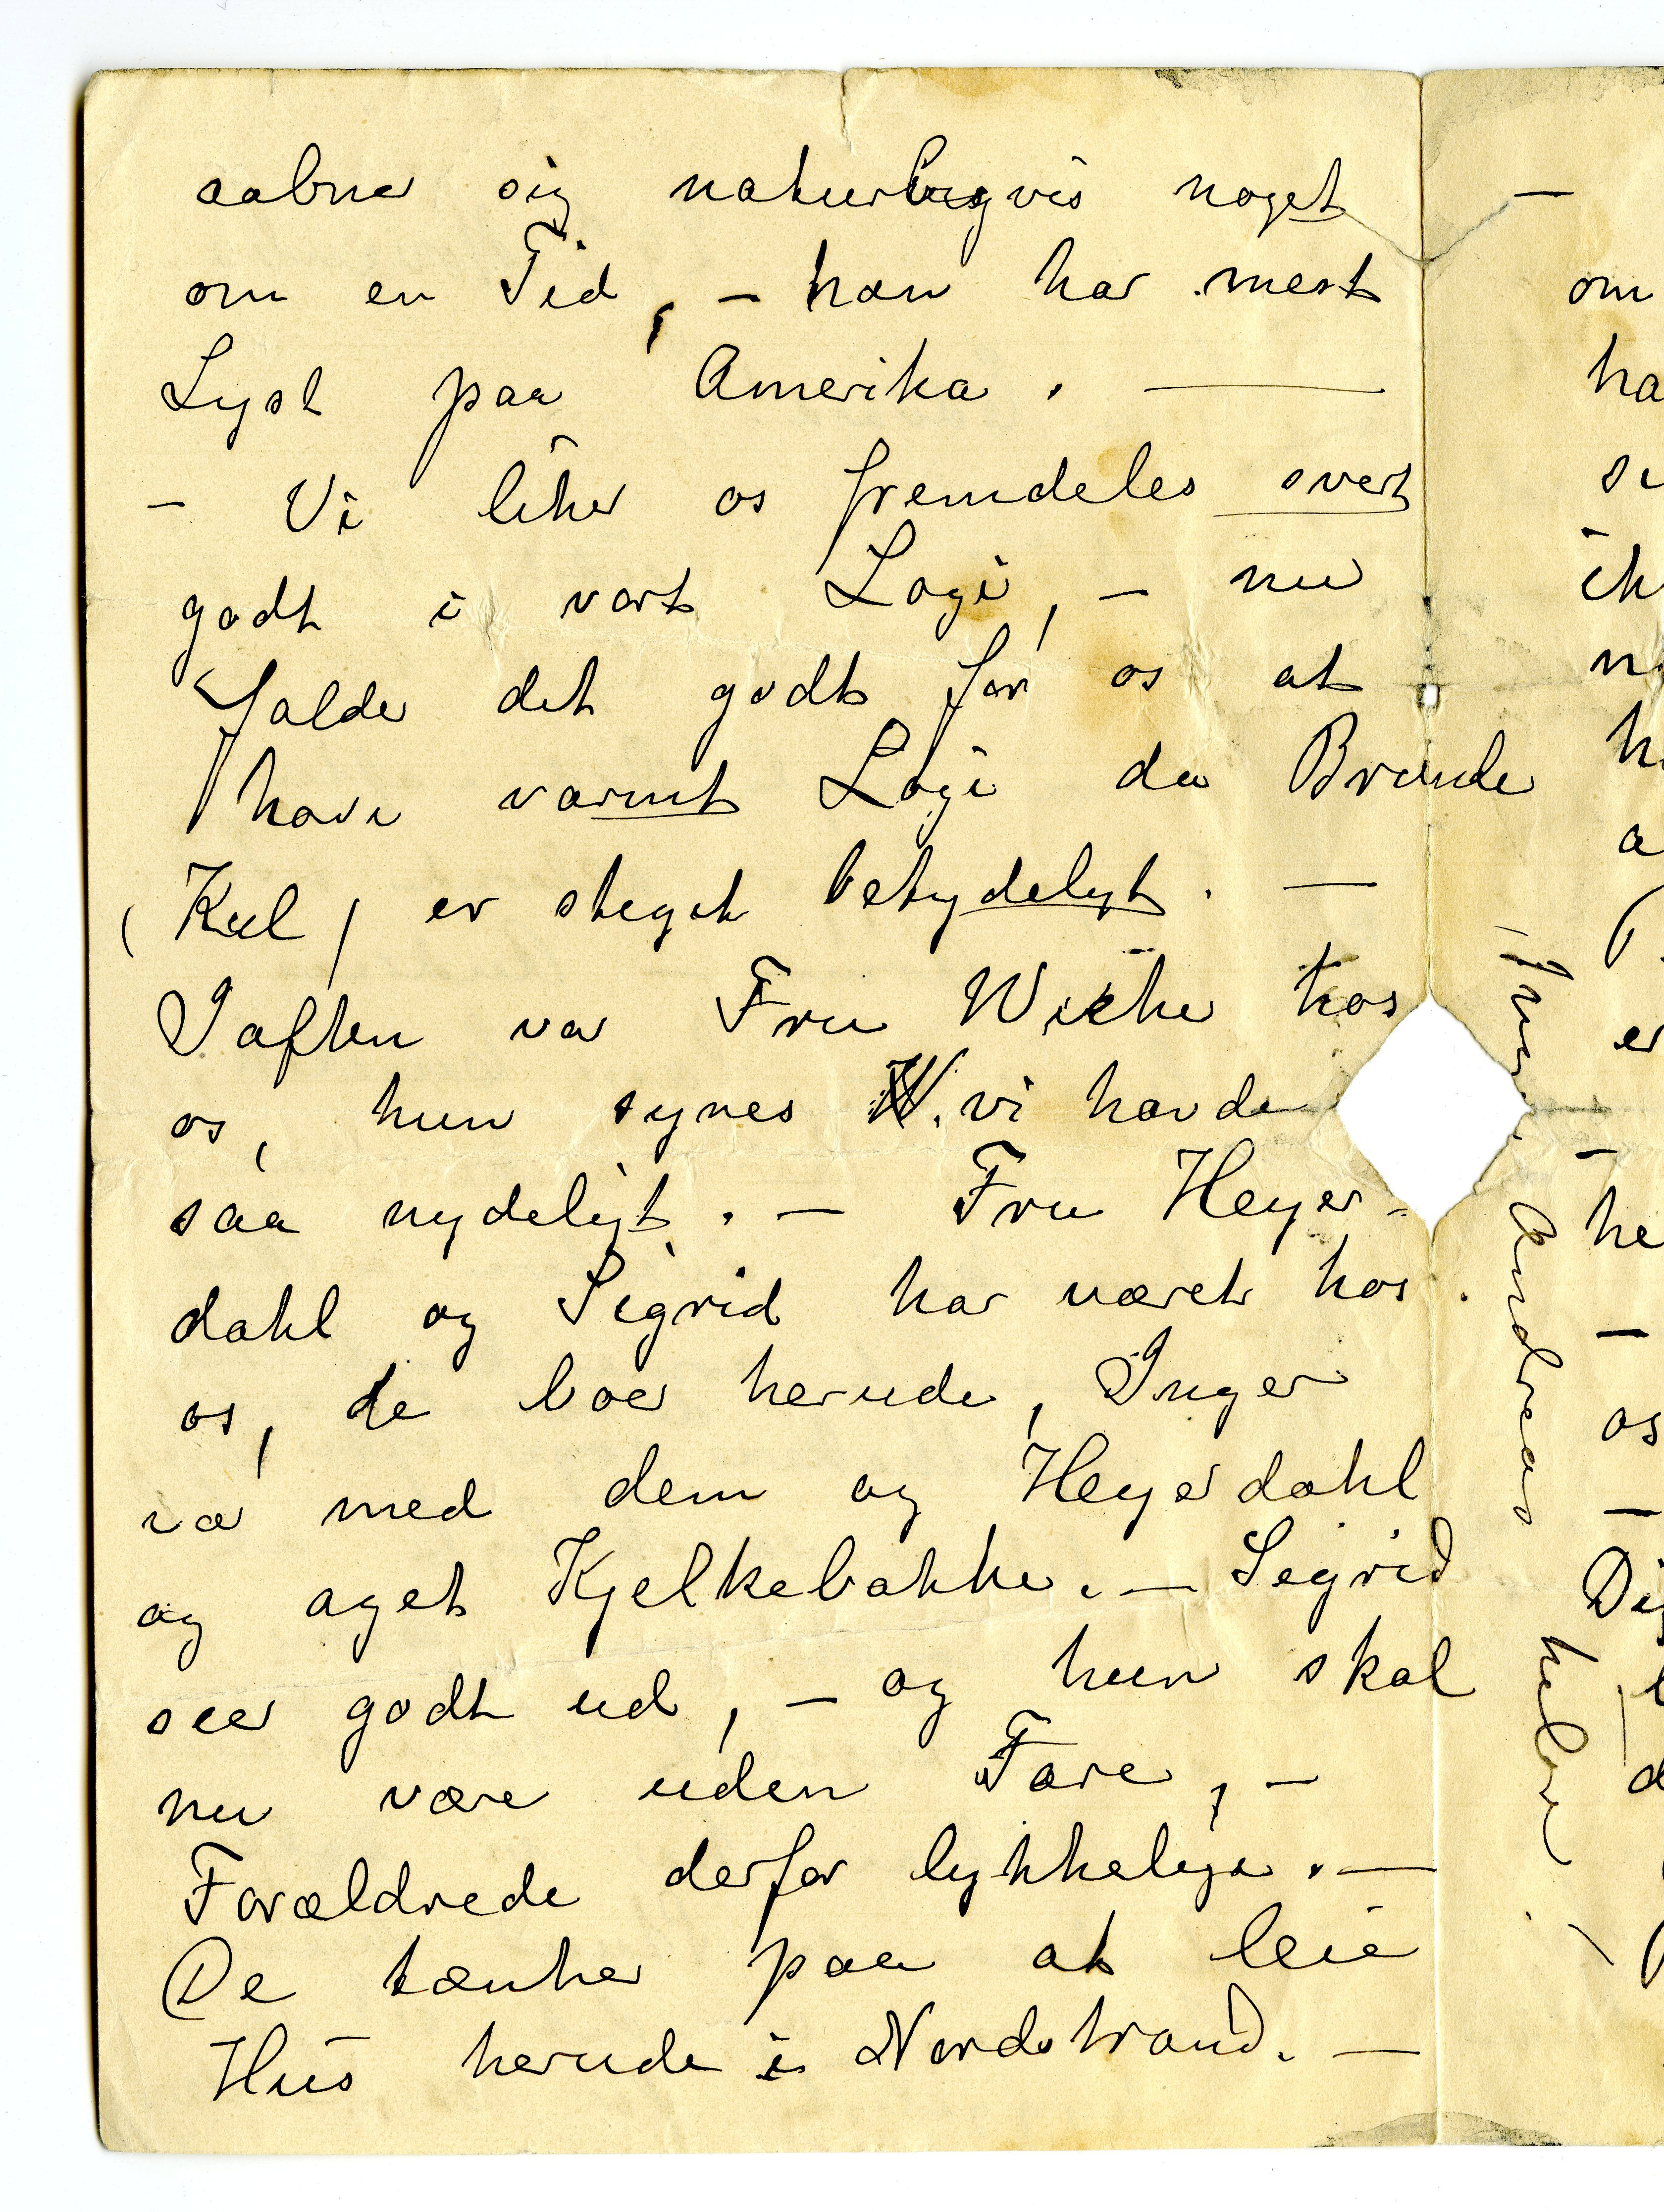 aabner sig naturligvis noget
om en Tid, – han har mest
Lyst paa Amerika. —
– Vi liker os fremdeles svert
godt i vort Logi, – nu
falder det godt for os at
have varmt Logi da Brænde
(Kul) er steget betydeligt. —
Iaften var Fru Wiche hos
os, hun synes vi havde
saa nydeligt. — Fru Heyer-
dahl og Sigrid har været hos
os, de boer herude, Inger
var med dem og Heyerdahl
og aget Kjelkebakke. — Sigrid
seer godt ud, – og hun skal
nu være uden Fare, –
Forældrede derfor lykkelige. —
De tænker paa at leie
Hus herude i Nordstrand. —
Andreas
–
om
ha
ik
h
a
er
– he
–
os
–
d